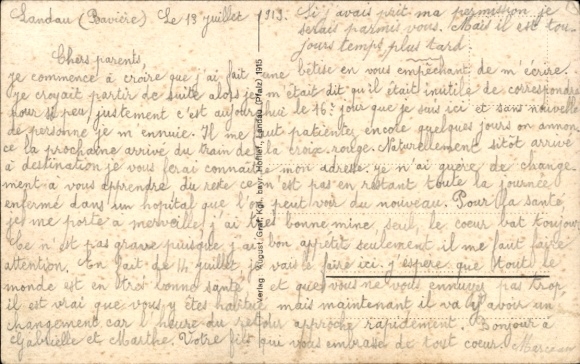 Landau (Bavière). Le 13 juillet 1919.
Si j'avais prit ma permission je
serais parmis vous. Mais il est tou-
jours temps plus tard
Chers parents,
je commence à croire que j'ai fait une bêtise en vous empêchant de m'écrire.
je croyait partir de suite alors je m'était dit qu'il était inutile de correspondre
pour si peu, justement c'est aujourd'hui le 16e jour que je suis ici et sans nouvelle
de personne je m'ennuie. Il me faut patienter encore quelques jours on annon-
ce la prochaine arrivé du train de la croix rouge. Naturellement sitôt arrivé
à destination je vous ferai connaître mon adresse. je n'ai guère de change-
ment à vous apprendre du reste ce n'est pas en restant toute la journée
enfermé dans un hopital que l'on peut voir du nouveau. Pour la santé,
je me porte à merveille, j'ai très bonne mine, seul, le coeur bat toujours
Ce n'est pas grave puisque j'ai bon appétit seulement il me faut faire
attention. En fait de 14 juillet je vais le faire ici. j'espère que tout le
monde est en très bonne santé et que vous ne vous ennuyez pas trop,
il est vrai que vous y êtes habitué mais maintenant il va y avoir un
changement car l'heure du retour approche rapidement. Bonjour à
Gabrielle et Marthe. Votre fils qui vous embrasse de tout coeur. Marceau
Verlag August Graf, Kgl. bayr. Hoflief., Landau (Pfalz) 1915